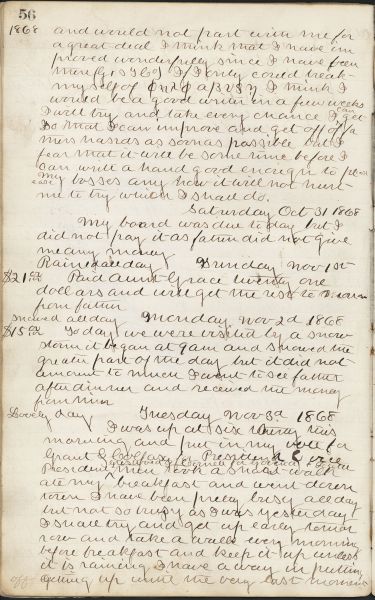 56
1868 and would not part with me for
a great deal I think that I have im
proved wonderfully since I have been
If I only could break
myself of I think I
would be a good writer in a few weeks
I will try and take every chance I can get
so that I can improve and get off of
Miss as soon as possible but I
fear that it will be some time before I
can write a hand good enough to please
my bosses any how it will not hurt
me to try which I shall do.
Saturday Oct 31 1868
My board was due to day but I
did not pay it as father did not give
me any money
Rained all day Sunday Nov 1st
$21.00 Paid Aunt Grace twenty one
dollars and will get the rest to morrow
from father
Snowed all day Monday Nov 2d 1868
$15.00 To day we were visited by a snow
storm it began at 9 am and snowed the
greater part of the day but it did not
amount to much I went to see father
after dinner and received the money
from him
Lovely day Tuesday Nov 3d 1868
I was up at six this
morning and put in my vote for
Grant & Colfax for President & Vice
President then I took a short walk
ate my breakfast and went down
town I have been pretty busy all day
but not so busy as I was yesterday
I shall try and get up early tomor
row and take a walk every morning
before breakfast and keep it up unless
it is raining I have a way in putting
off getting up until the very last moment